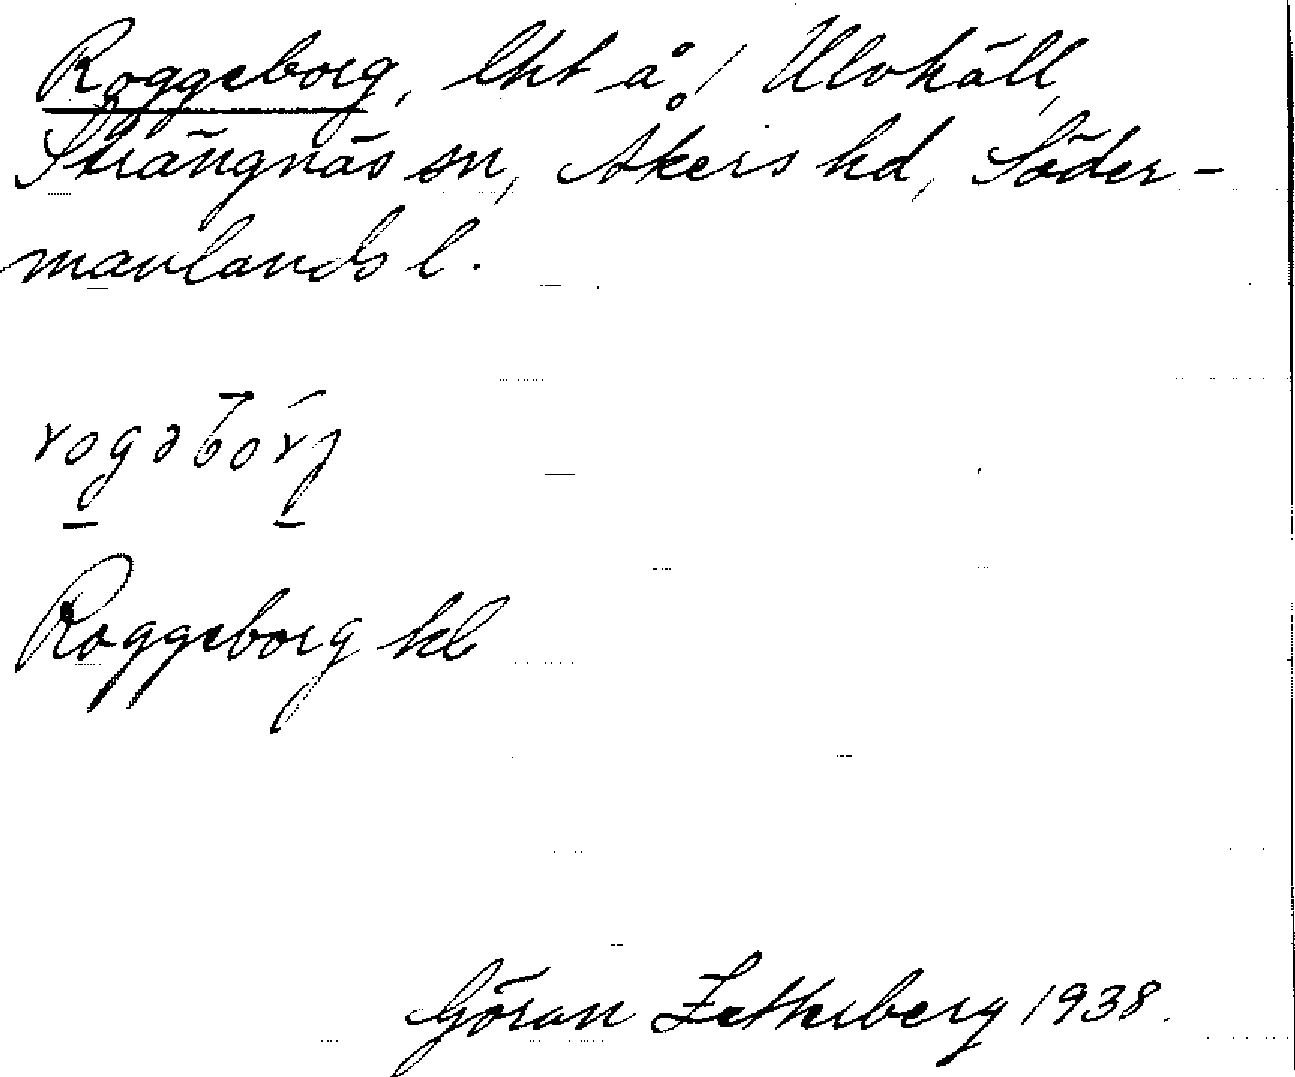 Roggeborg, lht å / Ulvhäll,
Strängnäs sn, Åkers hd, Söder-
manlands l.
rogəbo̅rj
Roggeborg kb
Göran Zetterberg 1938.